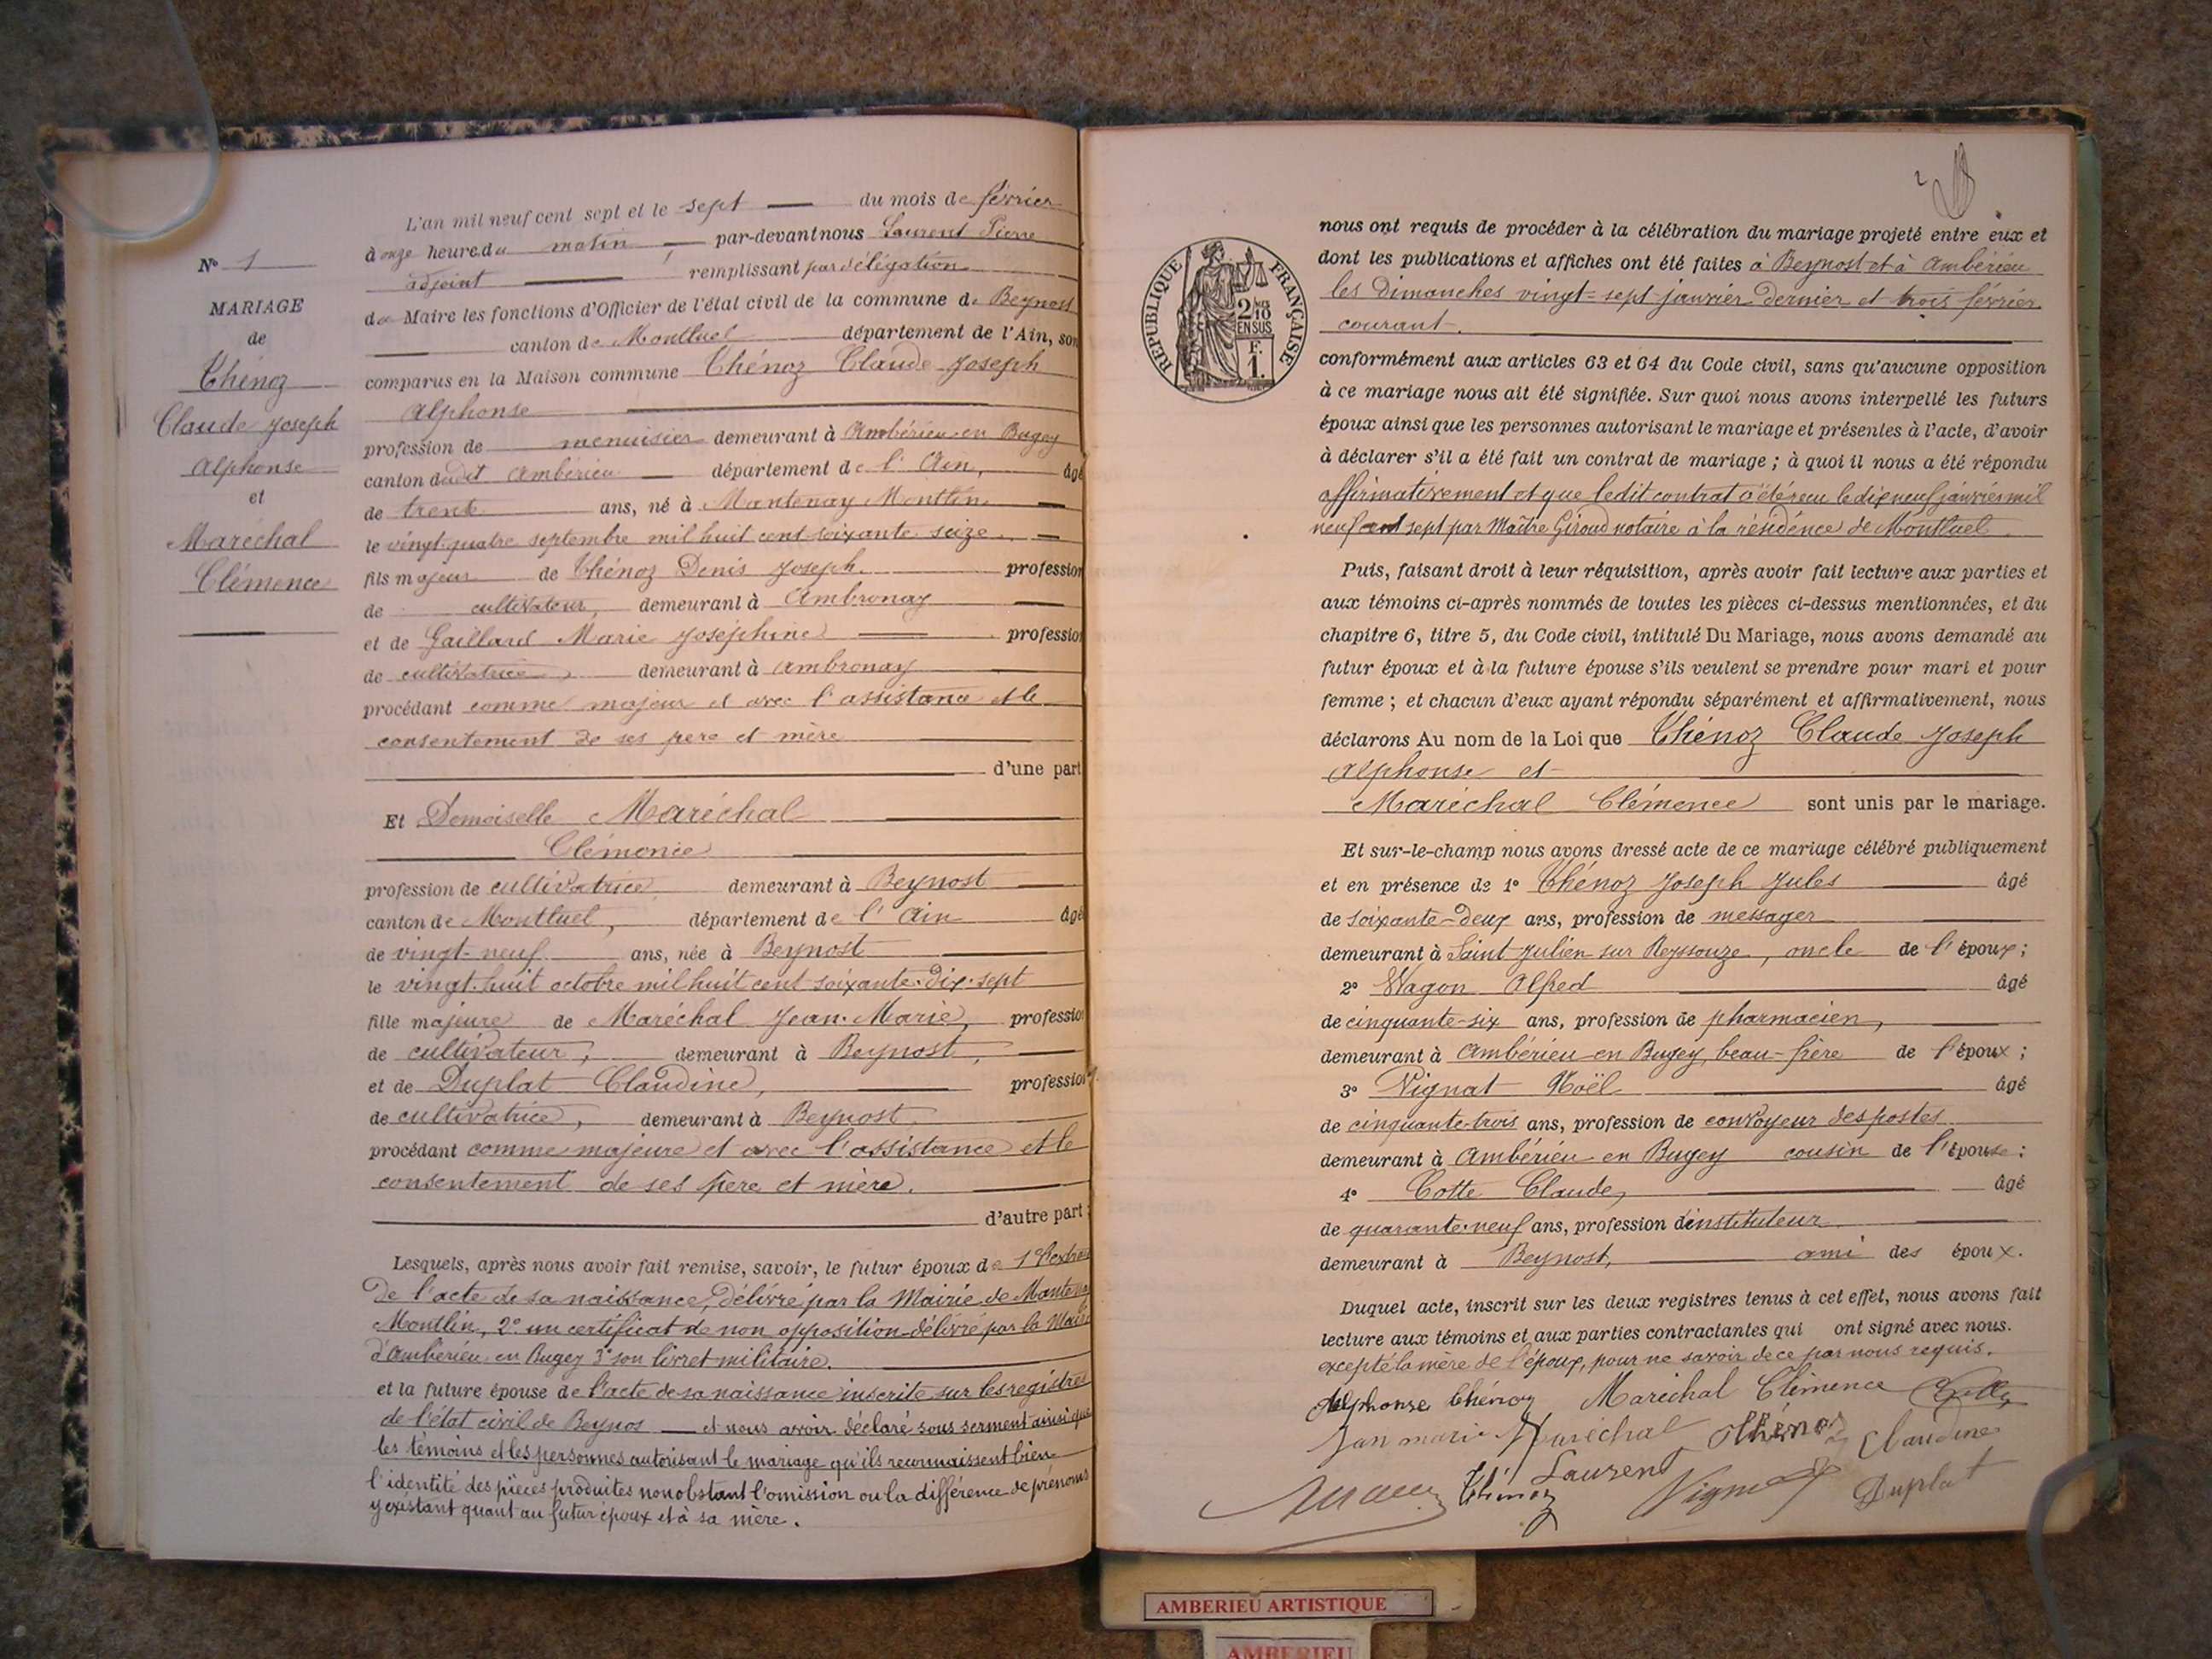 N° 1
MARIAGE
de
Thénoz
Claude Joseph
Alphonse
et
Maréchal
Clémence
L'an mil neuf cent sept et le sept du mois de février
à onze heure du matin, par-devant nous Laurent Pierre
adjoint remplissant par délégation
de Maire les fonctions d'Officier de l'état civil de la commune de Beynost
canton de Montluel département de l'Ain, son
comparus en la Maison commune Thénoz Claude Joseph
Alphonse
profession de menuisier demeurant à Ambérieu en Bugey
canton dudit Ambérieu département de l'Ain, âgé
de trente ans, né à Mantenay Montlin
le vingt quatre septembre mil huit cent soixante seize
fils majeur de Thénoz Denis Joseph profession
de cultivateur, demeurant à Ambronay
et de Gaillard Marie Joséphine profession
de cultivatrice, demeurant à Ambronay
procédant comme majeur et avec l'assistance et le
consentement de ses père et mère
d'une part
Et Demoiselle Maréchal
Clémence
profession de cultivatrice demeurant à Beynost
canton de Montluel, département de l'Ain âgé
de vingt-neuf ans, née à Beynost
le vingt-huit octobre mil huit cent soixante-dix-sept
fille majeure de Maréchal Jean-Marie, profession
de cultivateur, demeurant à Beynost,
et de Duplat Claudine, profession
de cultivatrice, demeurant à Beynost
procédant comme majeure et avec l'assistance et le
consentement de ses père et mère.
d'autre part :
Lesquels, après nous avoir fait remise, savoir, le futur époux de 1° l'extrait
de l'acte de sa naissance, délivré par la Mairie de Mantenay
Montlin, 2° un certificat de non opposition délivré par la Mairie
d'Ambérieu en Bugey 3° son livret militaire.
et la future épouse de l'acte de sa naissance inscrite sur les registres
de l'état civil de Beynos et nous avoir déclaré sous serment ainsi que
les témoins et les personnes autorisant le mariage qu'ils reconnaissent bien
l'identité des pièces produites nonobstant l'omission ou la différence de prénoms
y existant quant au futur époux et à sa mère.
2
REPUBLIQUE FRANÇAISE
2 10
EN SUS
F.
1.
nous ont requis de procéder à la célébration du mariage projeté entre eux et
dont les publications et affiches ont été faites à Beynost et à Ambérieu
les dimanches vingt-sept janvier dernier et trois février
courant.
conformément aux articles 63 et 64 du Code civil, sans qu'aucune opposition
à ce mariage nous ait été signifiée. Sur quoi nous avons interpellé les futurs
époux ainsi que les personnes autorisant le mariage et présentes à l'acte, d'avoir
à déclarer s'il a été fait un contrat de mariage ; à quoi il nous a été répondu
affirmativement et que ledit contrat a été reçu le dix neuf janvier mil
neuf cent sept par Maître Giroud notaire à la résidence de Montluel.
Puis, faisant droit à leur réquisition, après avoir fait lecture aux parties et
aux témoins ci-après nommés de toutes les pièces ci-dessus mentionnées, et du
chapitre 6, titre 5, du Code civil, intitulé Du Mariage, nous avons demandé au
futur époux et à la future épouse s'ils veulent se prendre pour mari et pour
femme ; et chacun d'eux ayant répondu séparément et affirmativement, nous
déclarons Au nom de la Loi que Thénoz Claude Joseph
Alphonse et
Maréchal Clémence sont unis par le mariage.
Et sur-le-champ nous avons dressé acte de ce mariage célébré publiquement
et en présence de 1° Thénoz Joseph Jules âgé
de soixante-deux ans, profession de messager
demeurant à Saint Julien sur Reyssouze, oncle de l'époux ;
2° Wagon Alfred âgé
de cinquante-six ans, profession de pharmacien,
demeurant à Ambérieu en Bugey, beau-frère de l'époux ;
3° Vignat Noël âgé
de cinquante-trois ans, profession de convoyeur des postes
demeurant à Ambérieu en Bugey cousin de l'épouse ;
4° Cotte Claude, âgé
de quarante-neuf ans, profession d'instituteur
demeurant à Beynost, ami des époux.
Duquel acte, inscrit sur les deux registres tenus à cet effet, nous avons fait
lecture aux témoins et aux parties contractantes qui ont signé avec nous.
excepté la mère de l'époux, pour ne savoir de ce par nous requis.
Alphonse Thénoz Maréchal Clémence Cotte
Jan marie Maréchal Thénoz Claudine
Thénoz Laurent Vignat Duplat
AMBERIEU ARTISTIQUE
AMBERIEU